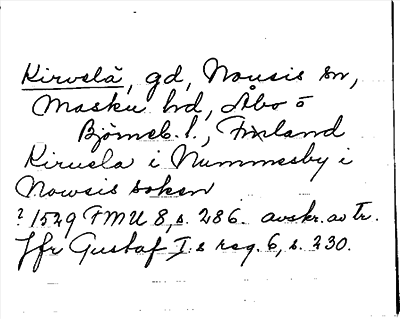 Kirvelä, gd, Nousis sn,
Masku hd, Åbo o
Björneb. l., Finland
Kiruela i Nummesby i
Nowsis soken
? 1529 FMU 8, s. 286. avskr. av tr.
Jfr Gustaf I:s reg. 6, s. 230.